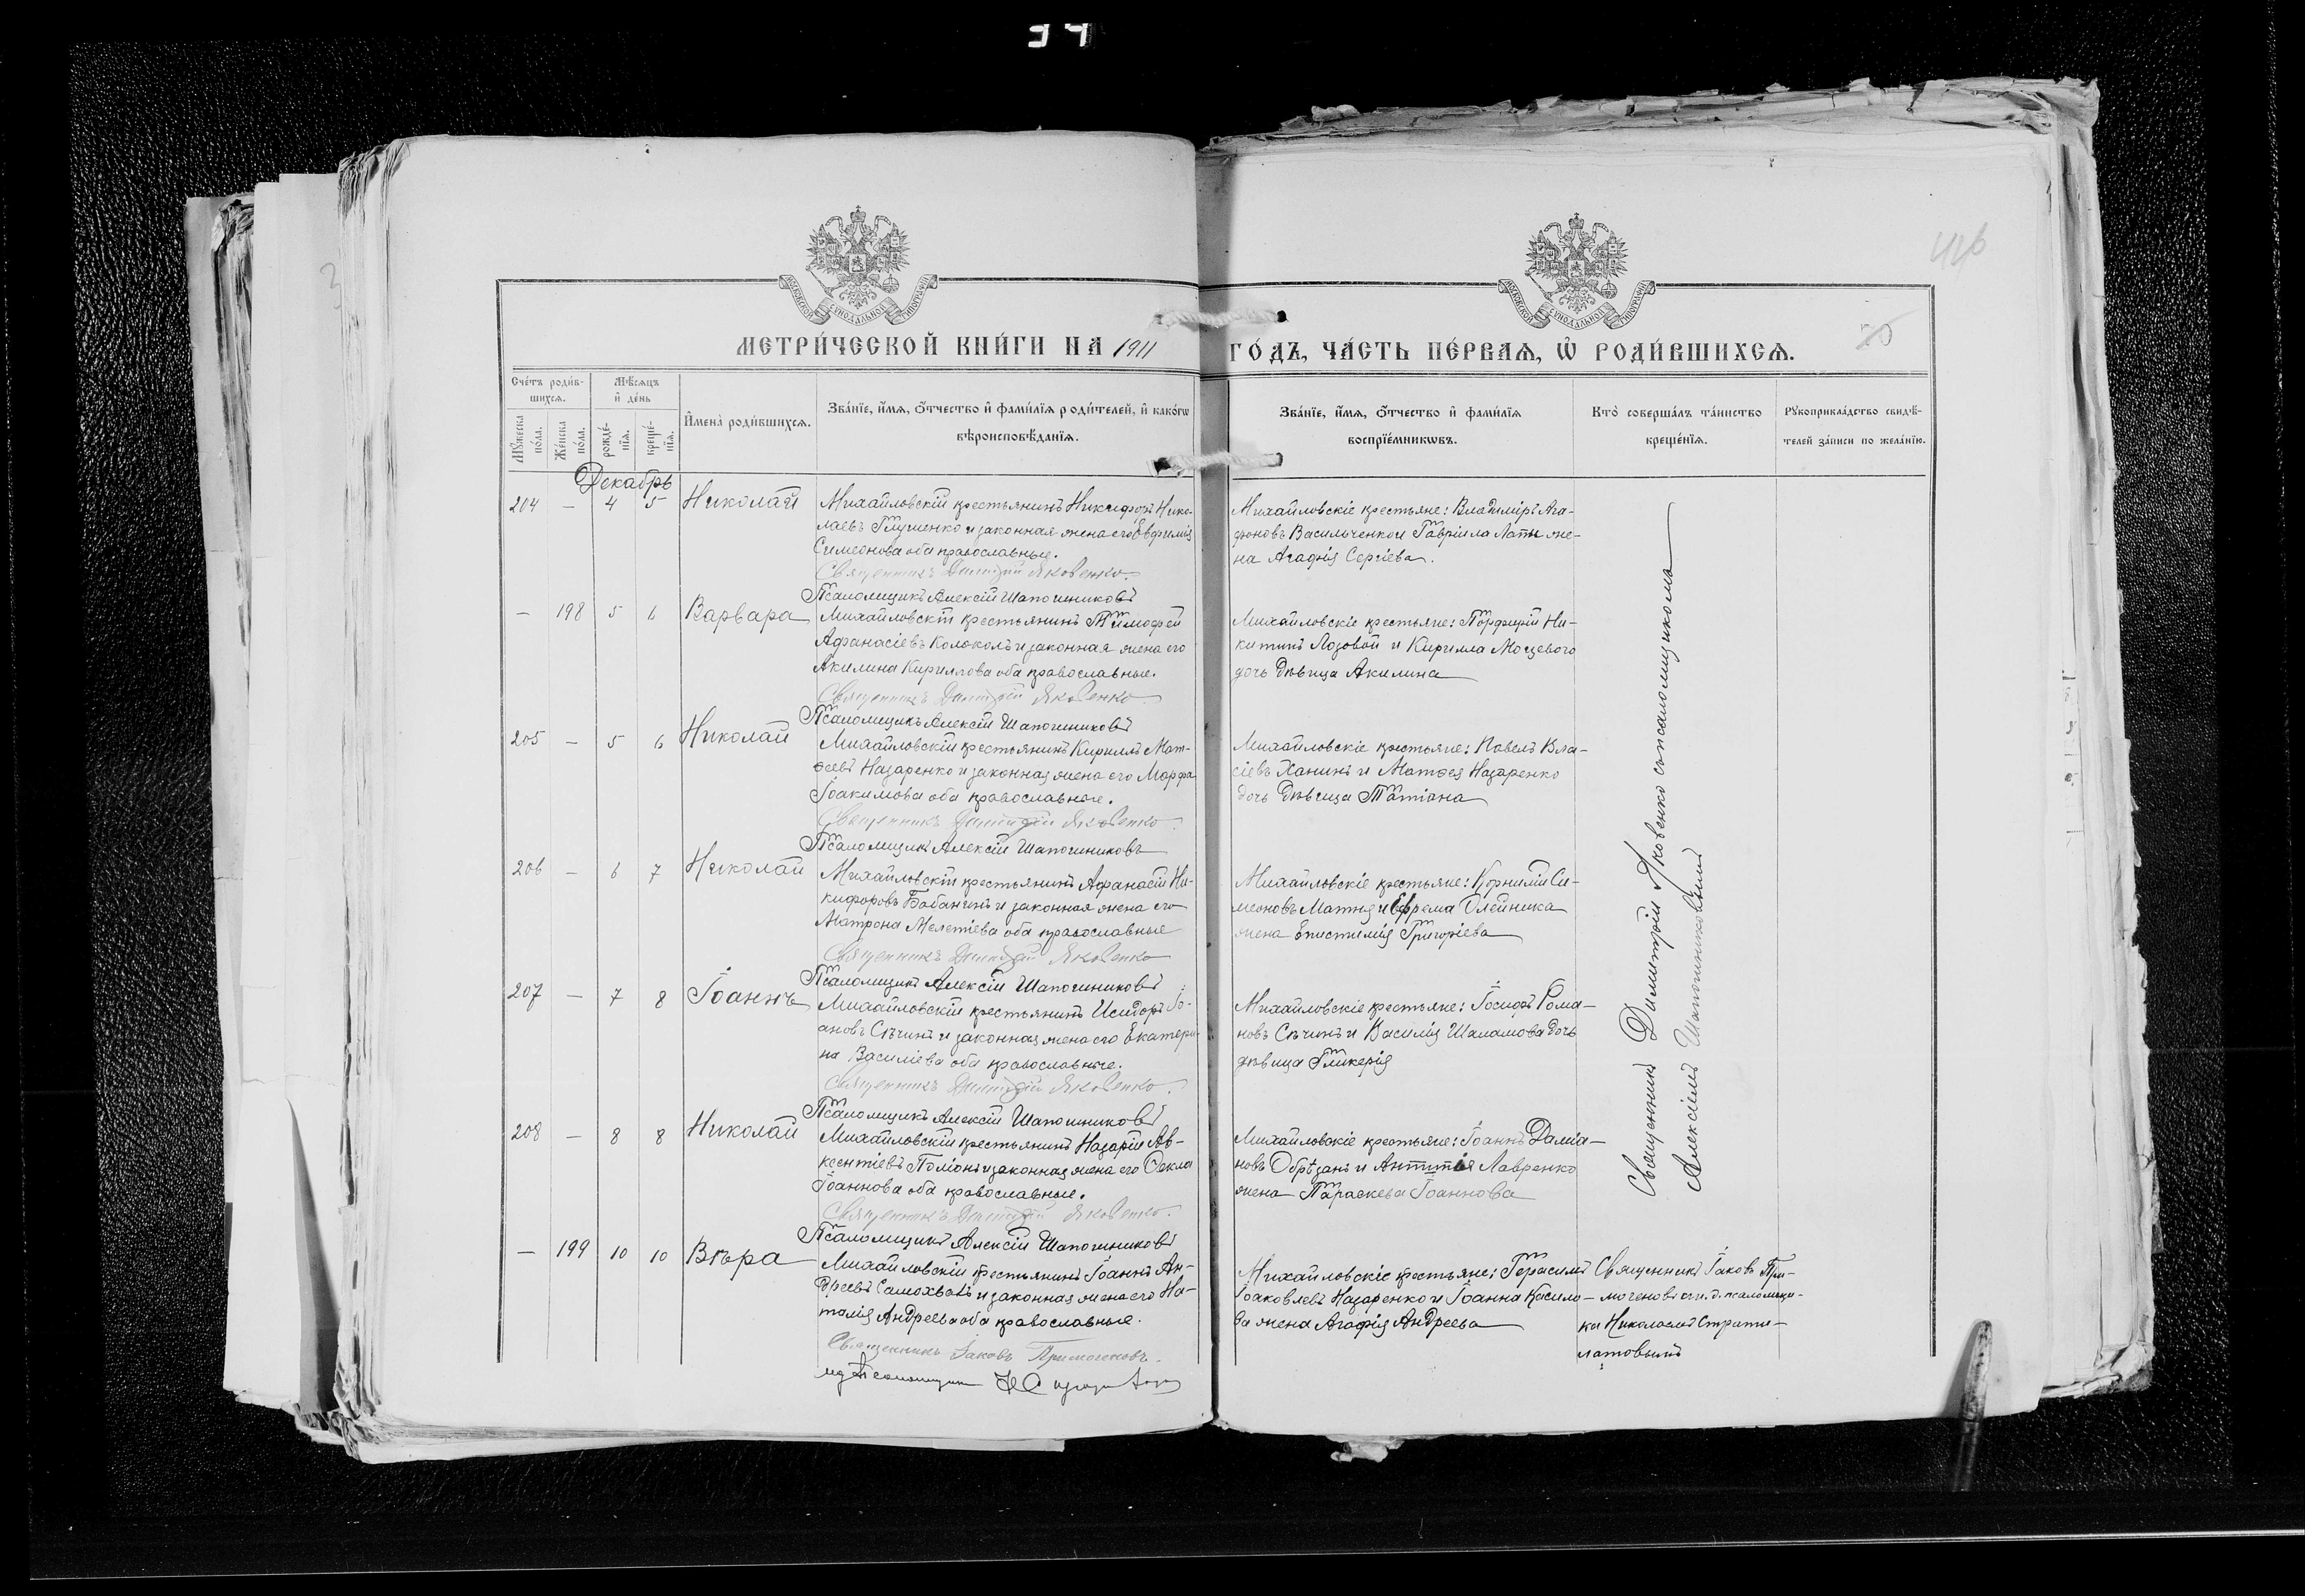 34
МОСКОВСКОЙ СѴНОДАЛЬНОЙ ТИПОГРАФІИ
МОСКОВСКОЙ СѴНОДАЛЬНОЙ ТИПОГРАФІИ
МЕТРИ́ЧЕСКОЙ КНИ́ГИ НА 1911 ГО́ДЪ, ЧА́СТЬ ПЕ́РВАѦ, Ѽ РОДИ́ВШИХСѦ.
Сче́тъ роди́в-
шихсѧ.
Мꙋ́жеска по́ла.
Же́нска по́ла.
Мѣ́сѧцъ
и҆ де́нь
рожде́-
нїѧ.
креще́-
нїѧ.
И҆мена̀ роди́вшихсѧ.
Зва́нїе, и҆́мѧ, ѻ҆́тчество и҆ фами́лїѧ роди́телей, и҆ како́гѡ
вѣроисповѣ́данїѧ.
Зва́нїе, и҆́мѧ, ѻ҆́тчество и҆ фами́лїѧ
воспрїе́мникѡвъ.
Кто̀ соверша́лъ та́инство
креще́нїѧ.
Рꙋкоприкла́дство свидѣ́-
телей за́писи по жела́нїю.
Декабрь
204 — 4 5 Николай
Михайловскій крестьянинъ Никифоръ Нико-
лаевъ Глущенко и законная жена его Евфимія
Симеонова оба православные.
Священникъ Димитрій Яковенко.
Псаломщикъ Алексій Шапошниковъ
Михайловскіе крестьяне: Владиміръ Ага-
фоновъ Васильченко и Гавріила Латы же-
на Агафія Сергіева.
— 198 5 6 Варвара
Михайловскій крестьянинъ Тимофей
Афанасіевъ Колоколъ и законная жена его
Акилина Кириллова оба православные.
Священникъ Димитрій Яковенко
Псаломщикъ Алексій Шапошниковъ
Михайловскіе крестьяне: Порфирій Ни-
китинъ Лозовой и Кирилла Мощевого
дочь дѣвица Акилина
205 — 5 6 Николай
Михайловскій крестьянинъ Кириллъ Мат-
ѳеевъ Назаренко и законная жена его Марфа
Іоакимова оба православные.
Священникъ Димитрій Яковенко.
Псаломщикъ Алексій Шапошниковъ
Михайловскіе крестьяне: Павелъ Вла-
сіевъ Ханинъ и Матѳея Назаренко
дочь дѣвица Татіана
206 — 6 7 Николай
Михайловскій крестьянинъ Афанасій Ни-
кифоровъ Бабанинъ и законная жена его
Матрона Мелетіева оба православные
Священникъ Димитрій Яковенко
Псаломщикъ Алексій Шапошниковъ
Михайловскіе крестьяне: Корнилій Си-
меоновъ Матня и Ефрема Олейника
жена Епистимія Григоріева
207 — 7 8 Іоаннъ
Михайловскій крестьянинъ Исидоръ Іо-
ановъ Сѣчинъ и законная жена его Екатери-
на Василіева оба православные.
Священникъ Димитрій Яковенко.
Псаломщикъ Алексій Шапошниковъ
Михайловскіе крестьяне: Іосифъ Рома-
новъ Сѣчинъ и Василія Шаламова дочь
дѣвица Гликерія
208 — 8 8 Николай
Михайловскій крестьянинъ Назарій Ав-
ксентіевъ Поліонъ и законная жена его Ѳекла
Іоаннова оба православные.
Священникъ Димитрій Яковенко.
Псаломщикъ Алексій Шапошниковъ
Михайловскіе крестьяне: Іоаннъ Даміа-
новъ Обрѣзанъ и Антипія Лавренко
жена Параскева Іоаннова
Священникъ Димитрій Яковенко съ псаломщикомъ
Алексіемъ Шапошниковымъ
— 199 10 10 Вѣра
Михайловскій крестьянинъ Іоаннъ Ан-
дреевъ Самохвалъ и законная жена его На-
талія Андреева оба православные.
Священникъ Іаковъ Примоченовъ.
Михайловскіе крестьяне: Герасимъ
Іоаковлевъ Назаренко и Іоанна Касило-
ва жена Агафія Андреева
Священникъ Іаковъ При-
моченовъ съ и. д. псаломщи-
ка Николаемъ Страти-
латовымъ